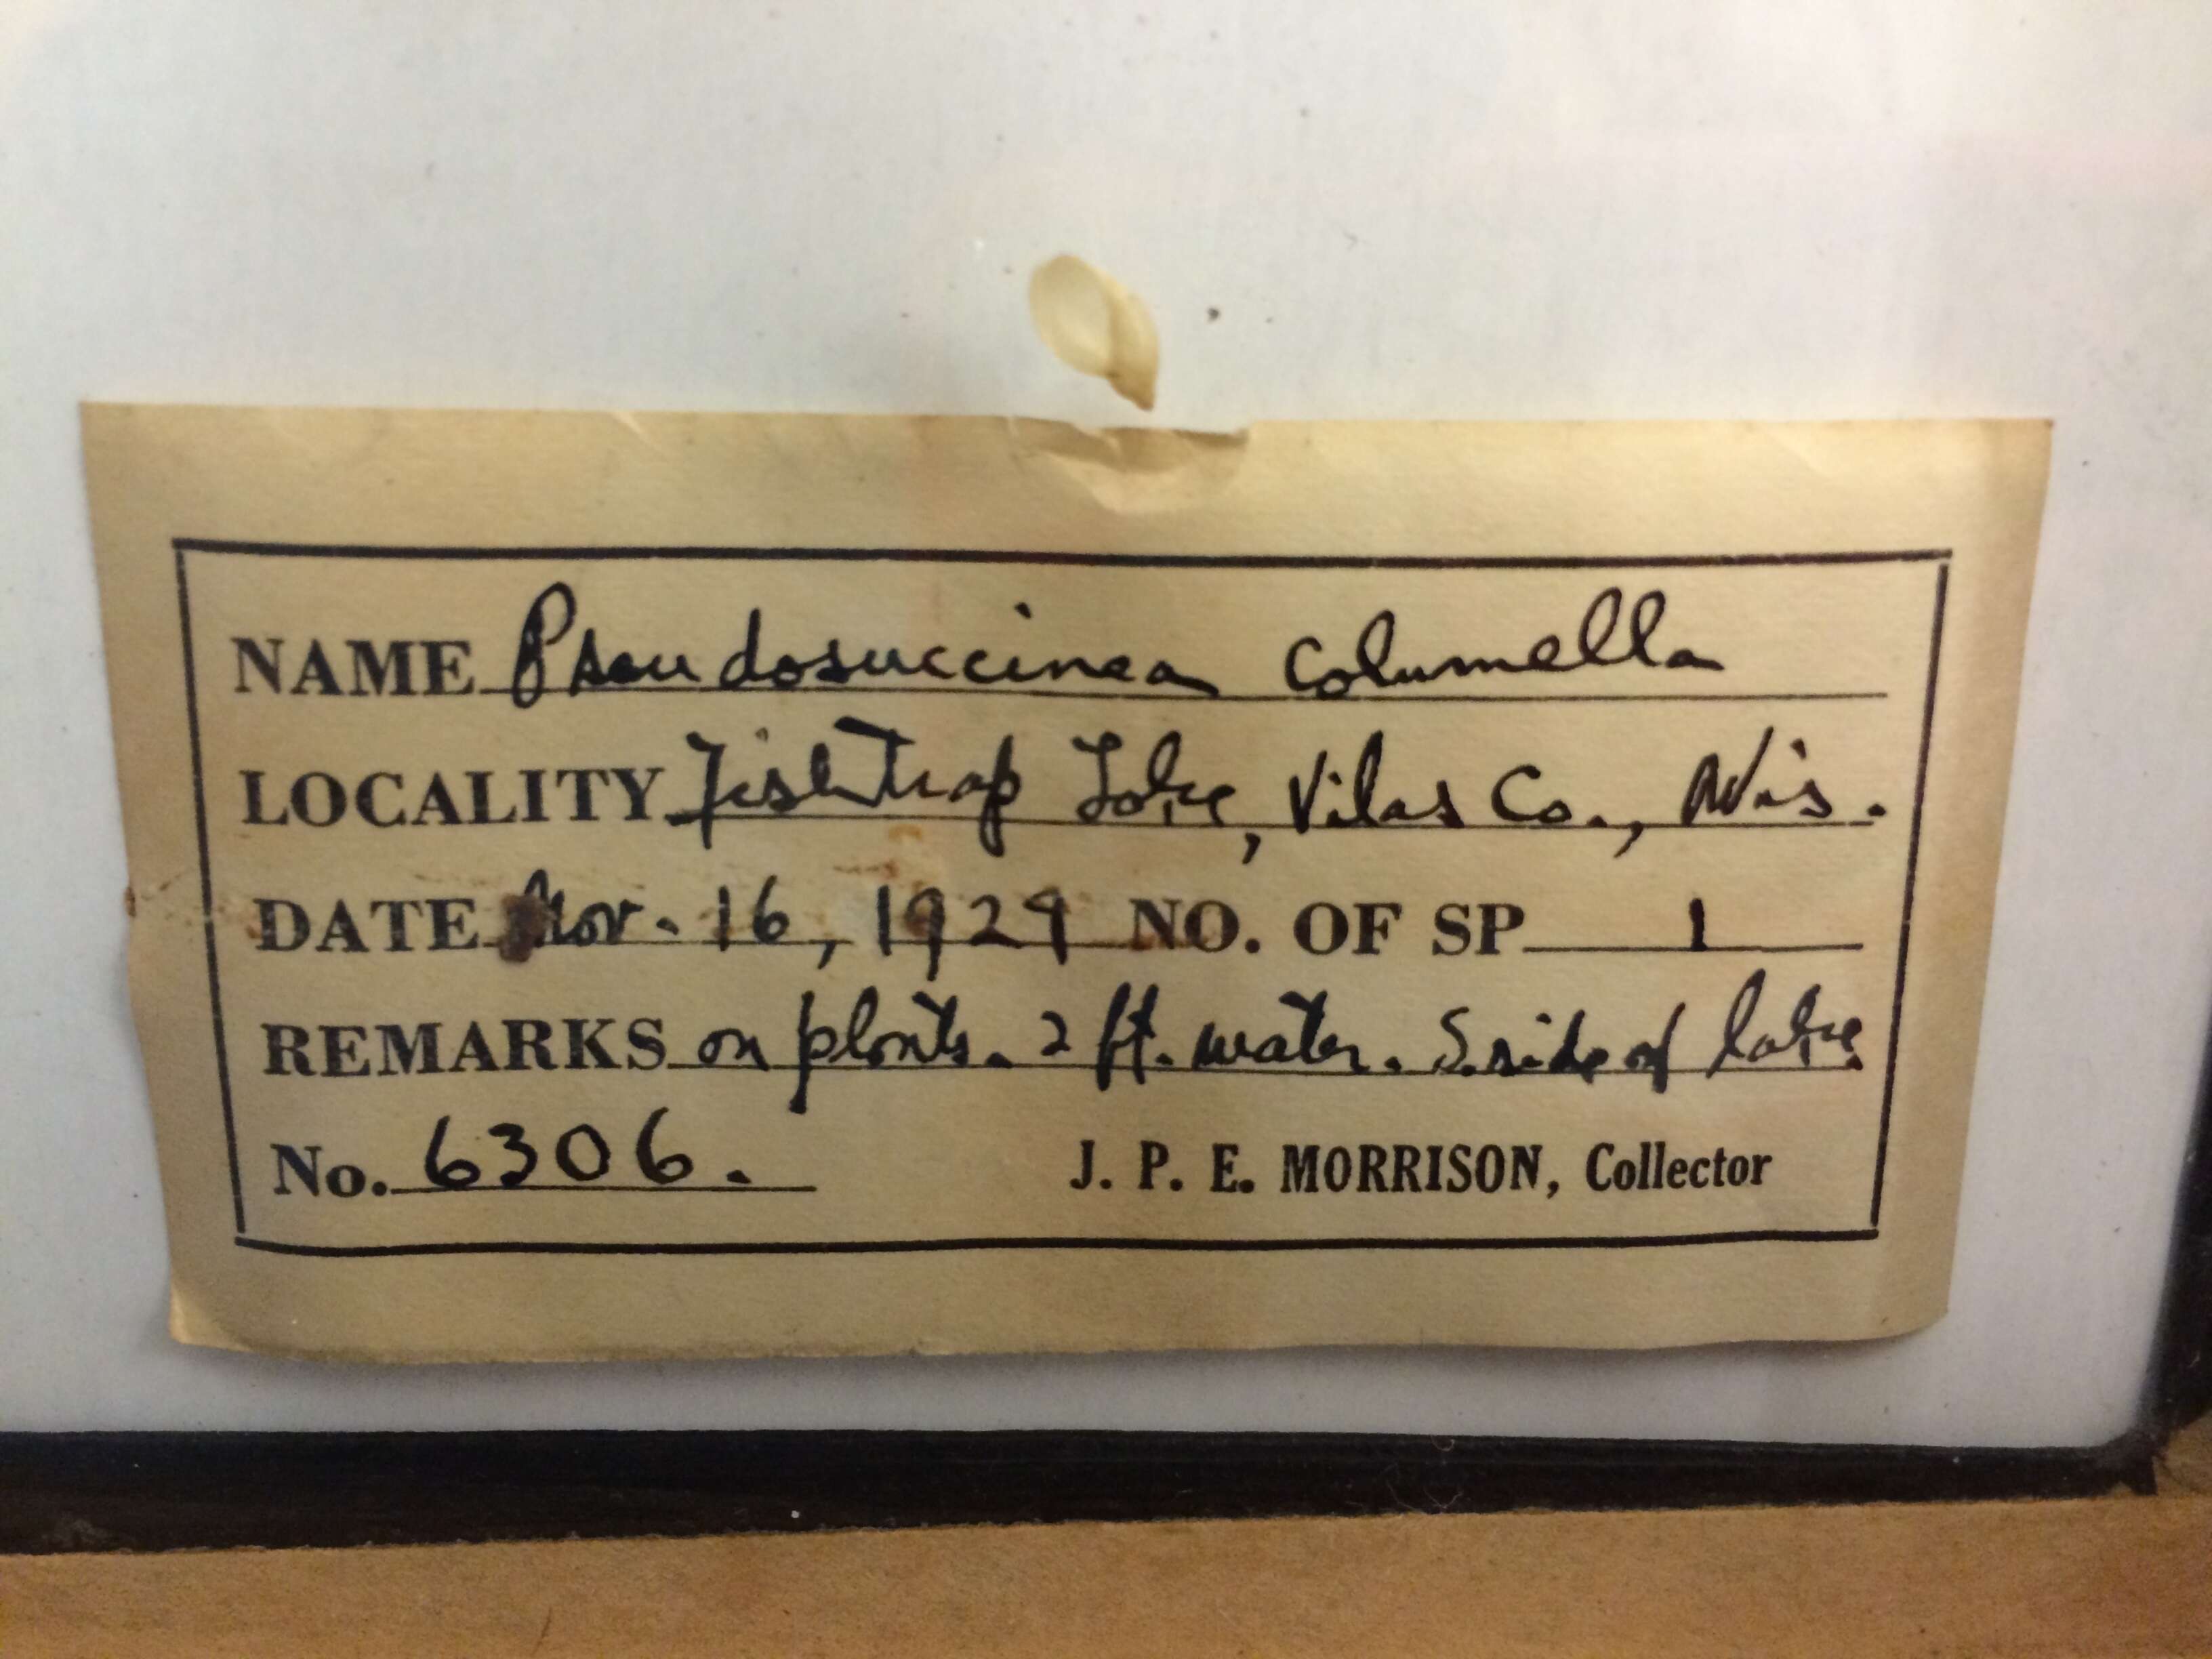 NAME Pseudosuccinea columella
LOCALITY Fishtrap Lake, Vilas Co., Wis.
DATE Nov. 16, 1929 NO. OF SP 1
REMARKS on plants. 2 ft. water. S. side of lake.
No. 6306. J. P. E. MORRISON, Collector